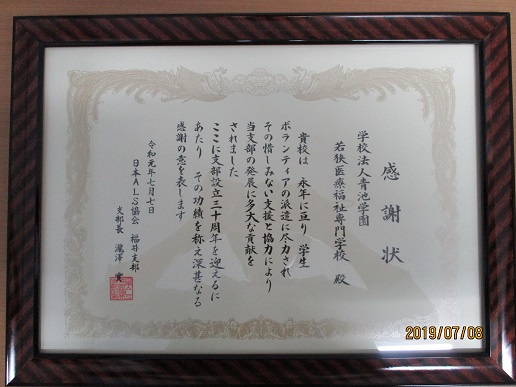 感謝状
学校法人青池学園
若狭医療福祉専門学校 殿
貴校は 永年に亘り 学生
ボランティアの派遣に尽力され
その惜しみない支援と協力により
当支部の発展に多大な貢献を
されました
ここに支部設立三十周年を迎えるに
あたり その功績を称え深甚なる
感謝の意を表します
令和元年七月七日
日本ALS協会 福井支部
支部長 瀧澤 實
2019/07/08